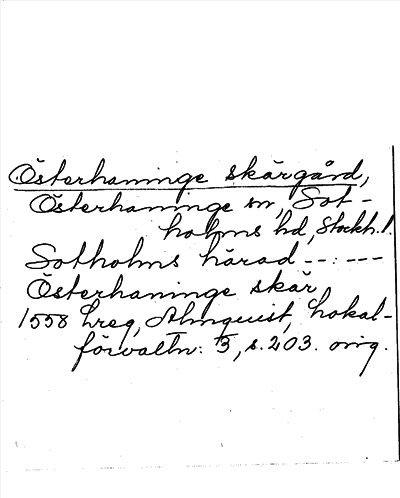 Österhaninge skärgård,
Österhaninge sn, Sot-
holms hd, Stockh. l.
Sotholms härad --:---
Österhaninge skär
1558 hreg, Almquist, Lokal-
förvaltn: 3, s. 203. orig.